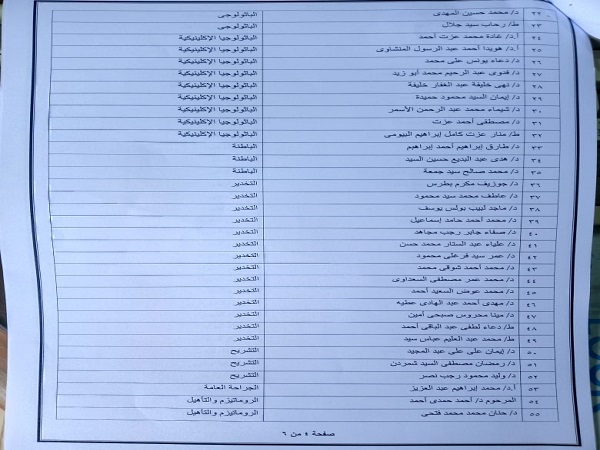 ٢٢ د/ محمد حسين المهدى الباثولوجى
٢٣ ط/ رحاب سيد جلال الباثولوجى
٢٤ أ.د/ غادة محمد عزت أحمد الباثولوجيا الإكلينيكية
٢٥ أ.د/ هويدا أحمد عبد الرسول المنشاوى الباثولوجيا الإكلينيكية
٢٦ د/ دعاء يونس على محمد الباثولوجيا الإكلينيكية
٢٧ د/ فدوى عبد الرحيم محمد أبو زيد الباثولوجيا الإكلينيكية
٢٨ د/ نهى خليفة عبد الغفار خليفة الباثولوجيا الإكلينيكية
٢٩ د/ إيمان السيد محمود حميدة الباثولوجيا الإكلينيكية
٣٠ د/ شيماء محمد عبد الرحمن الأسمر الباثولوجيا الإكلينيكية
٣١ د/ مصطفى أحمد عزت الباثولوجيا الإكلينيكية
٣٢ ط/ منار عزت كامل إبراهيم البيومى الباثولوجيا الإكلينيكية
٣٣ د/ طارق إبراهيم أحمد إبراهيم الباطنة
٣٤ د/ هدى عبد البديع حسين السيد الباطنة
٣٥ د/ محمد صالح سيد جمعة الباطنة
٣٦ د/ جوزيف مكرم بطرس التخدير
٣٧ د/ عاطف محمد سيد محمود التخدير
٣٨ د/ ماجد لبيب بولس يوسف التخدير
٣٩ د/ محمد أحمد حامد إسماعيل التخدير
٤٠ د/ صفاء جابر رجب مجاهد التخدير
٤١ د/ علياء عبد الستار محمد حسن التخدير
٤٢ د/ عمر سيد فرغلى محمود التخدير
٤٣ د/ محمد أحمد شوقى محمد التخدير
٤٤ د/ محمد عمر مصطفى السعداوى التخدير
٤٥ د/ محمد عوض السعيد أحمد التخدير
٤٦ د/ مهدى أحمد عبد الهادى عطيه التخدير
٤٧ د/ مينا محروس صبحى أمين التخدير
٤٨ ط/ دعاء لطفى عبد الباقى أحمد التخدير
٤٩ ط/ محمد عبد العليم عباس سيد التخدير
٥٠ د/ إيمان على على عبد المجيد التشريح
٥١ د/ رمضان مصطفى السيد شمردن التشريح
٥٢ د/ وليد محمود رجب نصر التشريح
٥٣ أ.د/ محمد إبراهيم عبد العزيز الجراحة العامة
٥٤ المرحوم د/ أحمد حمدى أحمد الروماتيزم والتأهيل
٥٥ د/ حنان محمد محمد فتحى الروماتيزم والتأهيل
صفحة ٤ من ٦